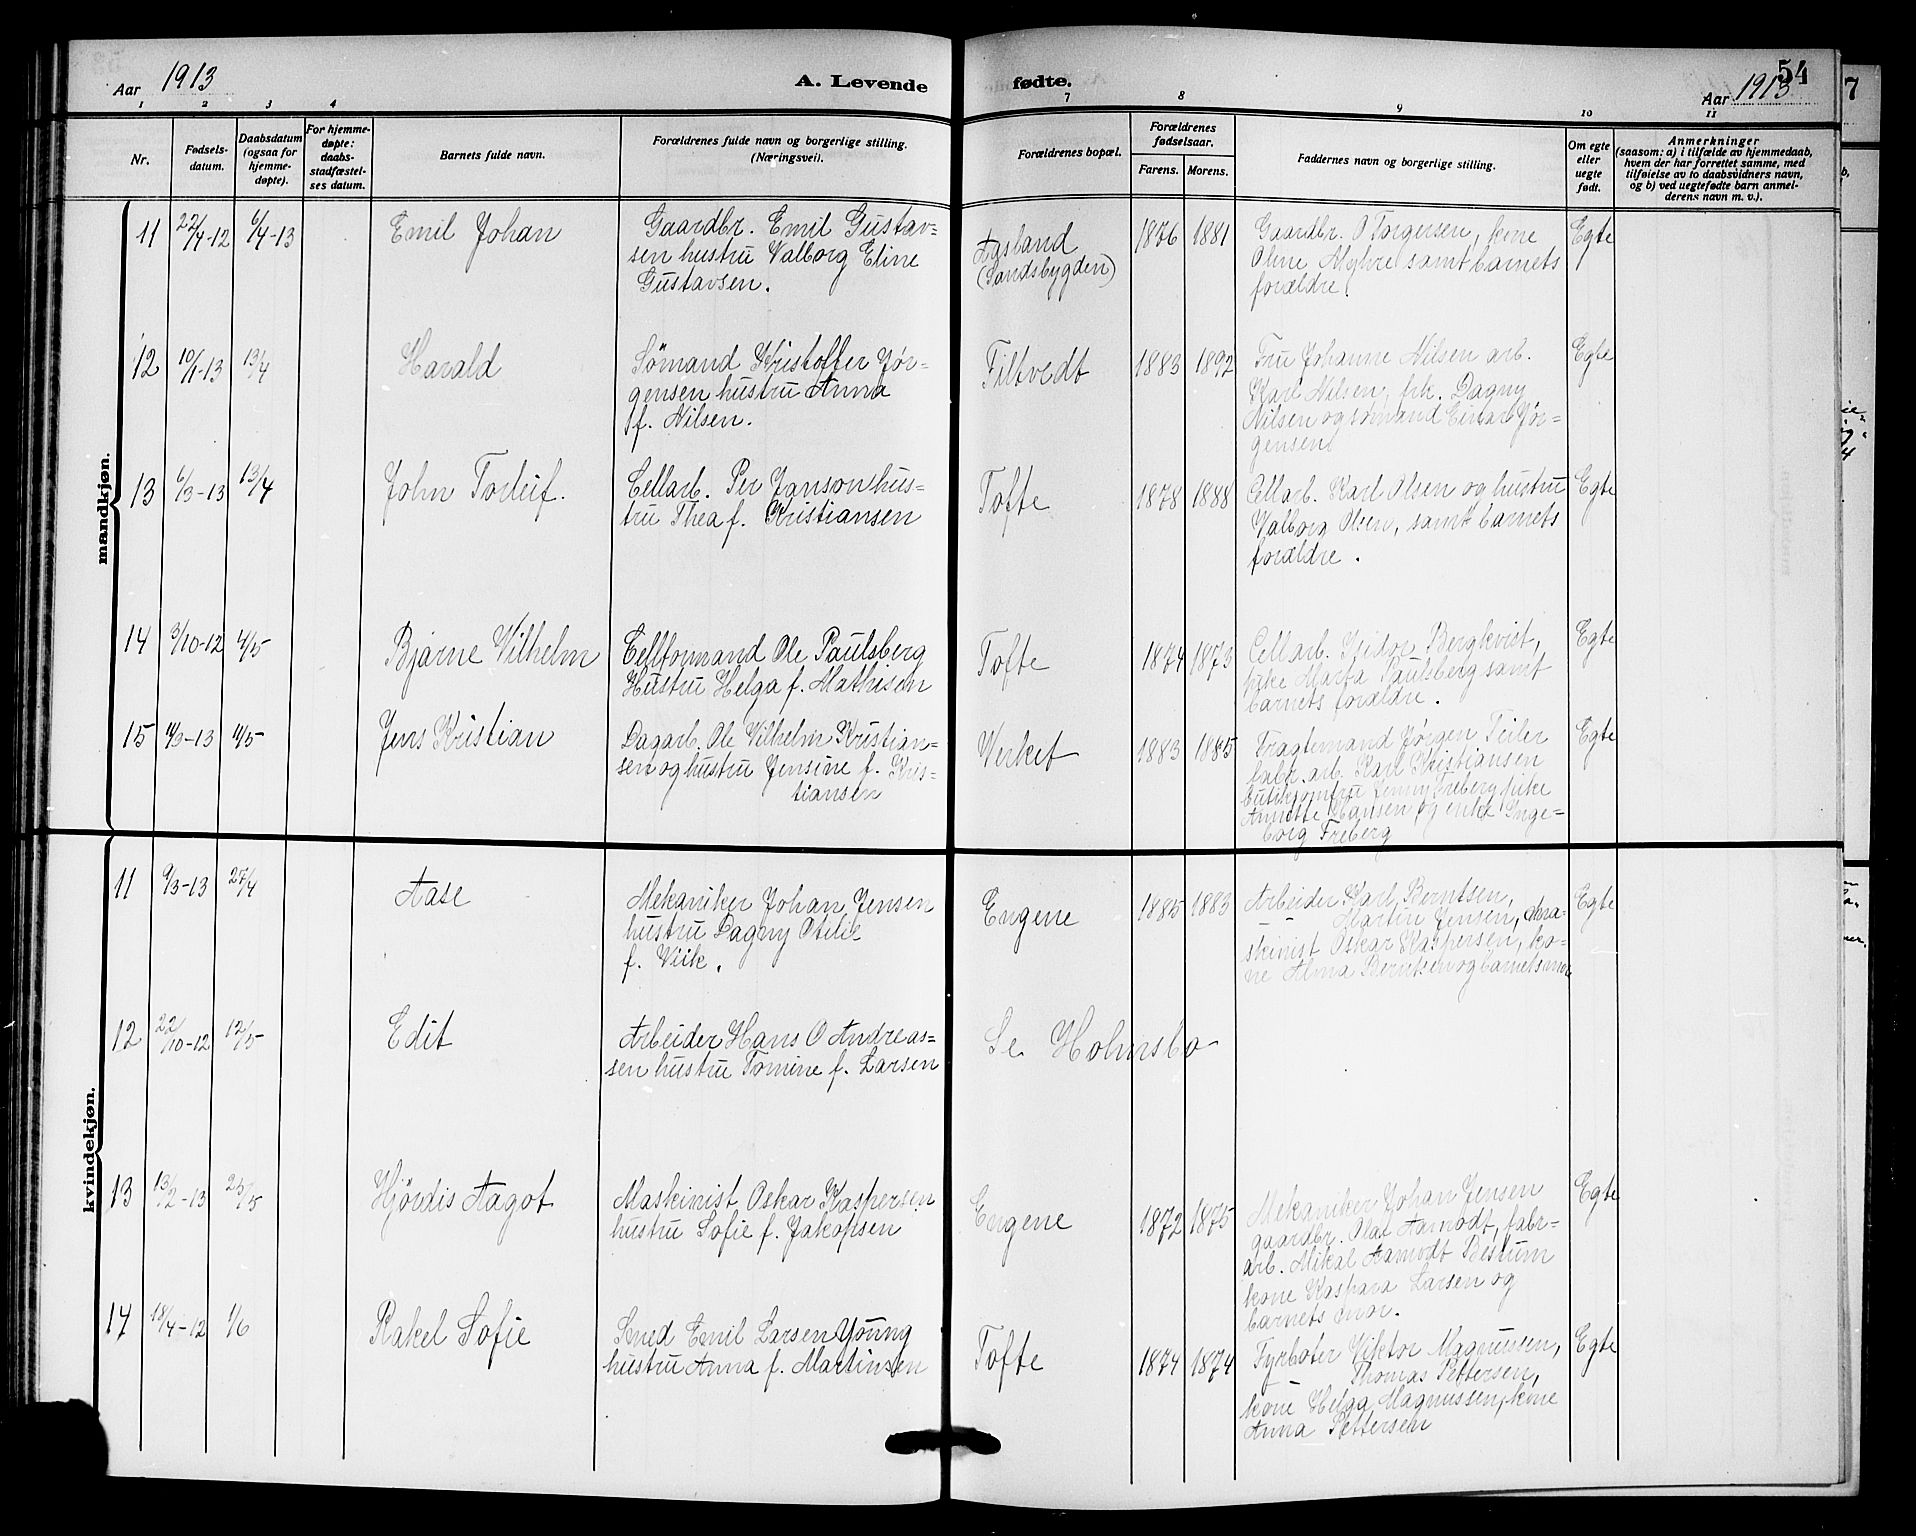 Aar 1913
A. Levende fødte.
54
Aar 1913
1 2 3 4 7 8 9 10 11
Nr.
Fødsels-
datum.
Daabsdatum
(ogsaa for
hjemme-
døpte).
For hjemme-
døpte:
daabs-
stadfæstel-
ses datum.
Barnets fulde navn.
Forældrenes fulde navn og borgerlige stilling.
(Næringsvei).
Forældrenes bopæl.
Forældrenes
fødselsaar.
Farens. Morens.
Faddernes navn og borgerlige stilling.
Om egte
eller
uegte
født.
Anmerkninger
(saasom: a) i tilfælde av hjemmedaab,
hvem der har forrettet samme, med
tilføielse av to daabsvidners navn,
og b) ved uegtefødte barn anmel-
derens navn m. v.).
mandkjøn.
11 22/4-12 6/4-13 Emil Johan
Gaardbr. Emil Gustav-
sen hustru Valborg Eline
Gustavsen.
Aasland
(Sandsbygden)
1876 1881
Gaardbr. O Torgersen, kone
Oline Myhre samt barnets
forældre.
Egte
12 10/1-13 13/4 Harald
Sömand Kristoffer Jør-
gensen hustru Anna
f. Nilsen.
Filtvedt 1883 1892
Fru Johanne Nilsen arb.
Karl Nilsen, frk. Dagny
Nilsen og sömand Einar Jør-
gensen
Egte
13 6/3-13 13/4 John Torleif.
Cellarb. Per Janson hus-
tru Thea f. Kristiansen
Tofte 1878 1888
Cellarb. Karl Olsen og hustru
Valborg Olsen, samt barnets
forældre.
Egte
14 3/10-12 4/5 Bjarne Vilhelm
Cellformand Ole Paulsberg
Hustru Helga f. Mathisen
Tofte 1874 1873
Cellarb. Isidor Bergkvist,
pike Marta Paulsberg samt
barnets forældre.
Egte
15 /3-13 11/5 Jens Kristian
Dagarb. Ole Vilhelm Kristian-
sen og hustru Jensine f. Kris-
tiansen
Verket 1883 1885
Fragtemand Jørgen Teiler
fabr. arb. Karl Kristiansen
butikjomfru Jenny Freberg pike
Annette Hansen og enke Inge-
borg Freberg
Egte
kvindekjøn.
11 9/3-13 27/4 Aase
Mekaniker Johan Jensen
hustru Dagny Otelie
f. Viik.
Engene 1885 1883
Arbeider Karl Berntsen,
— " — Martin Jensen, ma-
skinist Oskar Kaspersen, ko-
ne Alma Berntsen og barnets mor
Egte
12 22/10-12 12/5 Edit
Arbeider Hans O Andreas-
sen hustru Tomine f. Larsen
Se Holmsbo
13 13/2-13 25/5 Hjördis Aagot
Maskinist Oskar Kaspersen
hustru Sofie f. Jakopsen
Engene 1872 1875
Mekaniker Johan Jensen
gaardbr. Olaf Aamodt, fabr-
arb. Mikal Aamodt Bestum
kone Kaspara Larsen og
barnets mor.
Egte
14 18/4-12 1/6 Rakel Sofie
Smed Emil Larsen Young
hustru Anna f. Martinsen
Tofte 1874 1874
Fyrböter Viktor Magnussen,
Thomas Pettersen,
kone Helga Magnussen, kone
Anna Pettersen
Egte